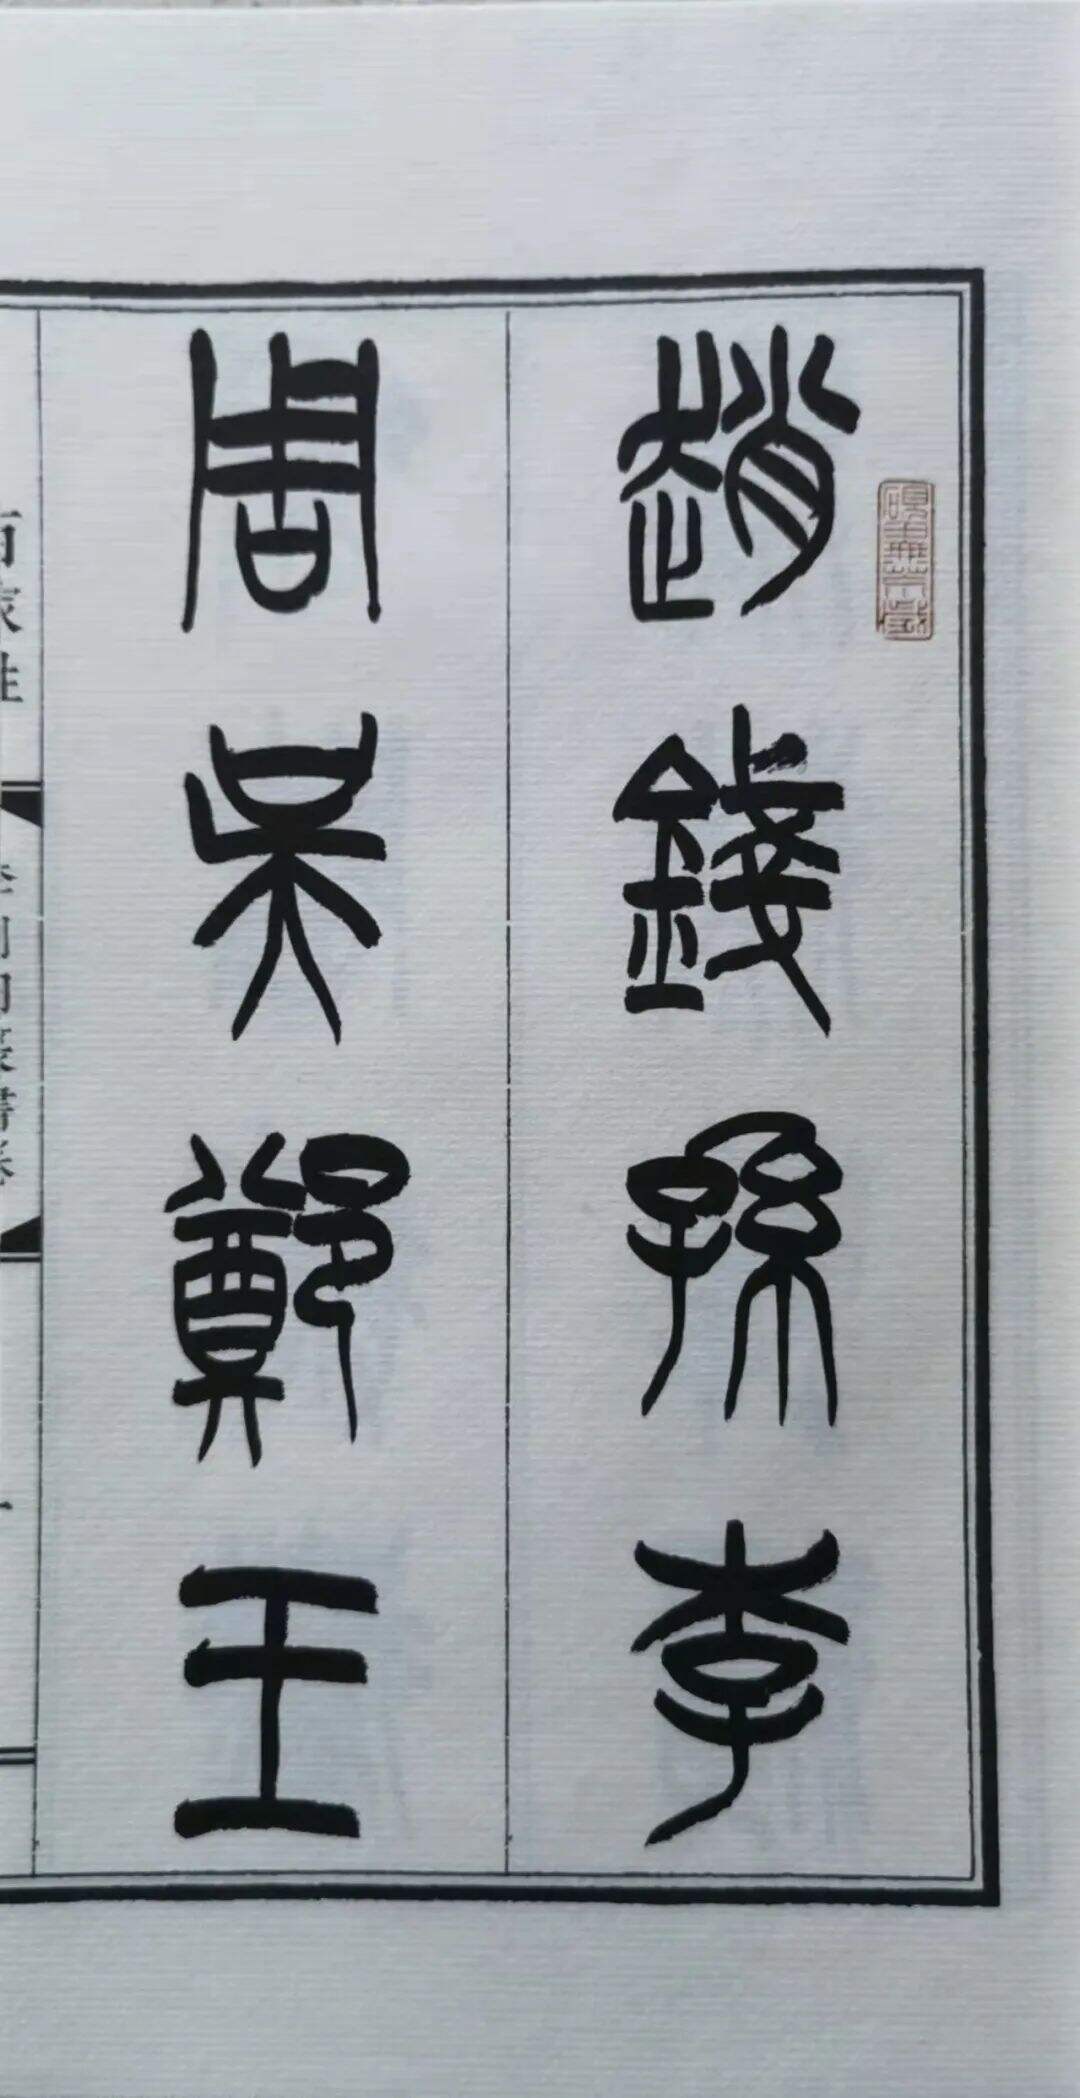 趙錢孫李
周吳鄭王
百家姓